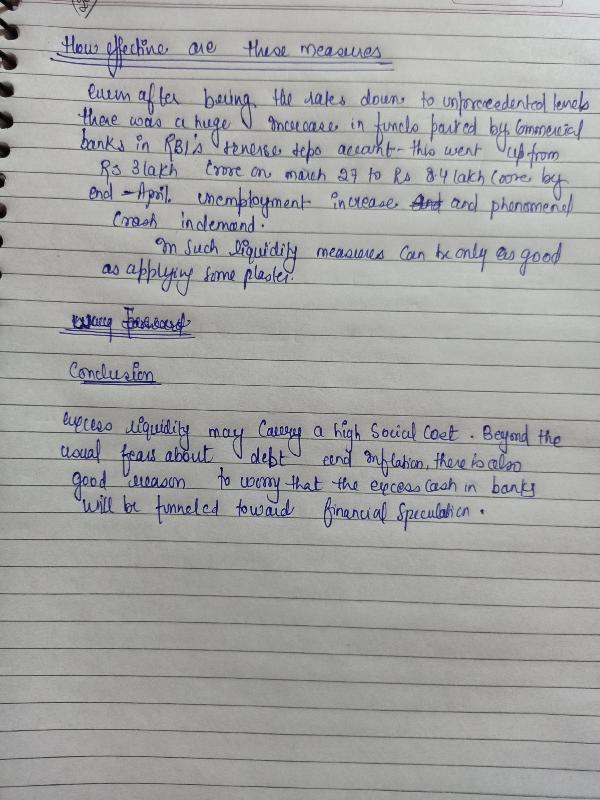 How effective are these measures
Even after being the rates down to unprecedented levels
there was a huge increase in funds parked by Commercial
banks in RBI's reverse repo account - this went up from
Rs 3 lakh Crore on march 27 to Rs 8.4 lakh Crore by
end - April. unemployment increase and and phenomenal
Crash in demand.
In such liquidity measures can be only as good
as applying some plaster.
Way Forward
Conclusion
excess liquidity may Carry a high Social Cost. Beyond the
usual fears about debt and inflation, there is also
good reason to worry that the excess Cash in banks
will be funneled toward financial Speculation.